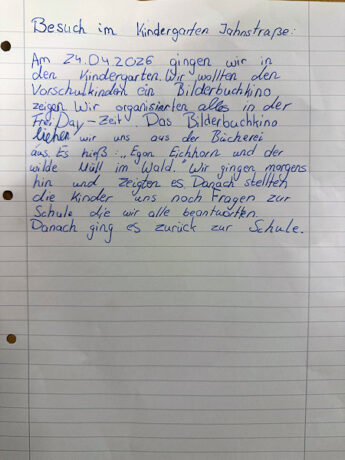 Besuch im Kindergarten Jahnstraße:
Am 24.04.2026 gingen wir in
den Kindergarten. Wir wollten den
Vorschulkindern ein Bilderbuchkino
zeigen. Wir organisierten alles in der
Frei Day - Zeit. Das Bilderbuchkino
liehen wir uns aus der Bücherei
aus. Es hieß: „Egon Eichhorn und der
wilde Müll im Wald." Wir gingen morgens
hin und zeigten es. Danach stellten
die Kinder uns noch Fragen zur
Schule die wir alle beantworten.
Danach ging es zurück zur Schule.